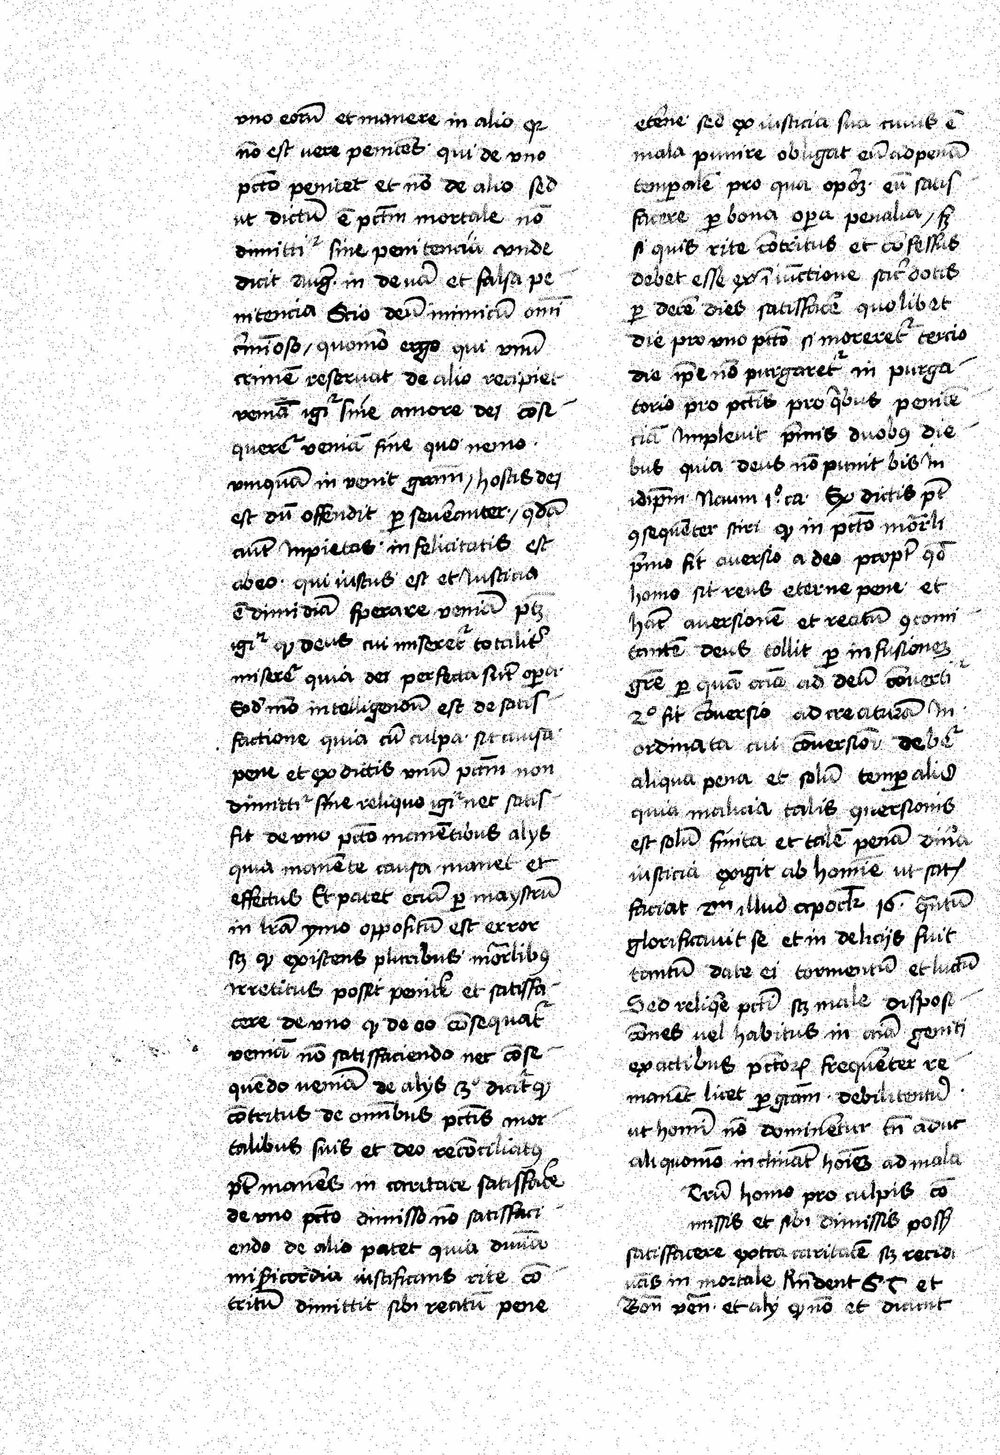 vno eorũ et manere in alio qꝛ
nõ est vere penitẽs qui de vno
pctõ penitet et nõ de alio sed
ut dictũ ẽ pctm̃ mortale nõ
dimittiᷣ sine penitencia vnde
dicit aug̃ in de va͂ et falsa pe
nitencia Scio deũ inimicũ omĩ
c̃minoso / quomõ ergo qui vnũ
crimẽ reservat de alio recipiet
veniã igiᷣ sine amore dei cõse
querẽᷣ veniã sine quo nemo
vnquam in venit graciam / hostis dei
est dũ offendit ꝑ severanter / q̃dã
aut̃ Inpietas infidelitatis est
ab eo qui iustus est et Iusticia
ẽ dimidiã sperare veniã pt̃ꝫ
igiᷣ ꝙ deus cui miseretᷣ totalit̃
miserẽᷣ quia dei perfecta sũt oꝑa
Scd̃mõ intelligendũ est de satis
factione quia cũ culpa sit causa
pene et ex dictis vnũ pctm̃ non
dimittiᷣ sine reliquo igiᷣ nec satis
fit de vno pctõ manẽtibus alys
quia manẽte causa manet et
effectus Et patet eciã ꝑ maystrũ
in lr̃a ymo oppositũ est error
sꝫ ꝙ existens pluribus mõrlibꝰ
irretitus posset penitẽ et satisfa
cere de vno ꝙ de eo cõsequatᷣ
veniã nõ satisfaciendo nec cõse
quẽdo veniã de alys Sꝫ diciᷣt ꝙ
cõtritus de omĩbus pctĩs mor
talibus suis et deo recõciliatꝰ
pt̃ manẽs in caritate satisfacẽ
de vno pctõ dimisso nõ satisfaci
endo de alio patet quia diuĩa
mĩsericordia iustificans rite cõ
tritũ dimittit sibi reatũ pene
etẽne sed ex iusticia sua cuius ẽ
mala punire obligat eũ ad penã
temporalẽ pro qua oporꝫ eũ satis
facere ꝑ bona oꝑa penalia / sꝫ
si quis rite cõtritus et cõfessus
debet esse ex ĩiũctione sac̃dotis
ꝑ decẽ dies satisfacẽ quolibet
die pro vno pctõ si moreretᷣ tercio
die ip̃e nõ purgaretᷣ in purga
torio pro pctĩs pro q̃bus peniten
ciã Impleuit p̃mis duobꝰ die
bus quia deus nõ punit bis In
idipm̃ Naum 1º ca Ex dictis pt̃
ꝯsequẽter sciri ꝙ in pctõ mõrli
p̃mo fit aversio a deo propt̃ qõ
homo sit reus eterne pene et
hãc aversionẽ et reatũ ꝯcomi
tantẽ deus tollit ꝑ infusionẽ
grẽ ꝑ quã aĩa ad deũ cõvertiᷣ
2º fit cõversio ad creaturã In
ordinata cui cõversioni debẽᷣ
aliqua pena et solũ temꝑalis
quia malicia talis ꝯuersionis
est solũ finita et talẽ penã diuĩa
iusticia exigit ab homĩe ut satis
faciat 2m illud apoclꝫ 16 q̃ntũ
glorificauit se et in delicijs fuit
tantũ date ei tormentũ et luctũ
Sed reliq̃e pctĩ sꝫ male disposi
cõnes vel habitus in aĩa geniti
ex actibus pctõꝝ frequẽter re
manẽt licet ꝑ grãm debilitentur
ut homĩ nõ dominẽtur tñ adhuc
aliquomõ inclinãt hoĩeꝫ ad mala
Vtrũ homo pro culpis cõ
missis et sibi dimissis possꝫ
satisfacere extra caritatẽ sꝫ recidi
uãs in mortale Rñdent S T et
Bon̄ ven̄ et alij ꝙ nõ et dicunt